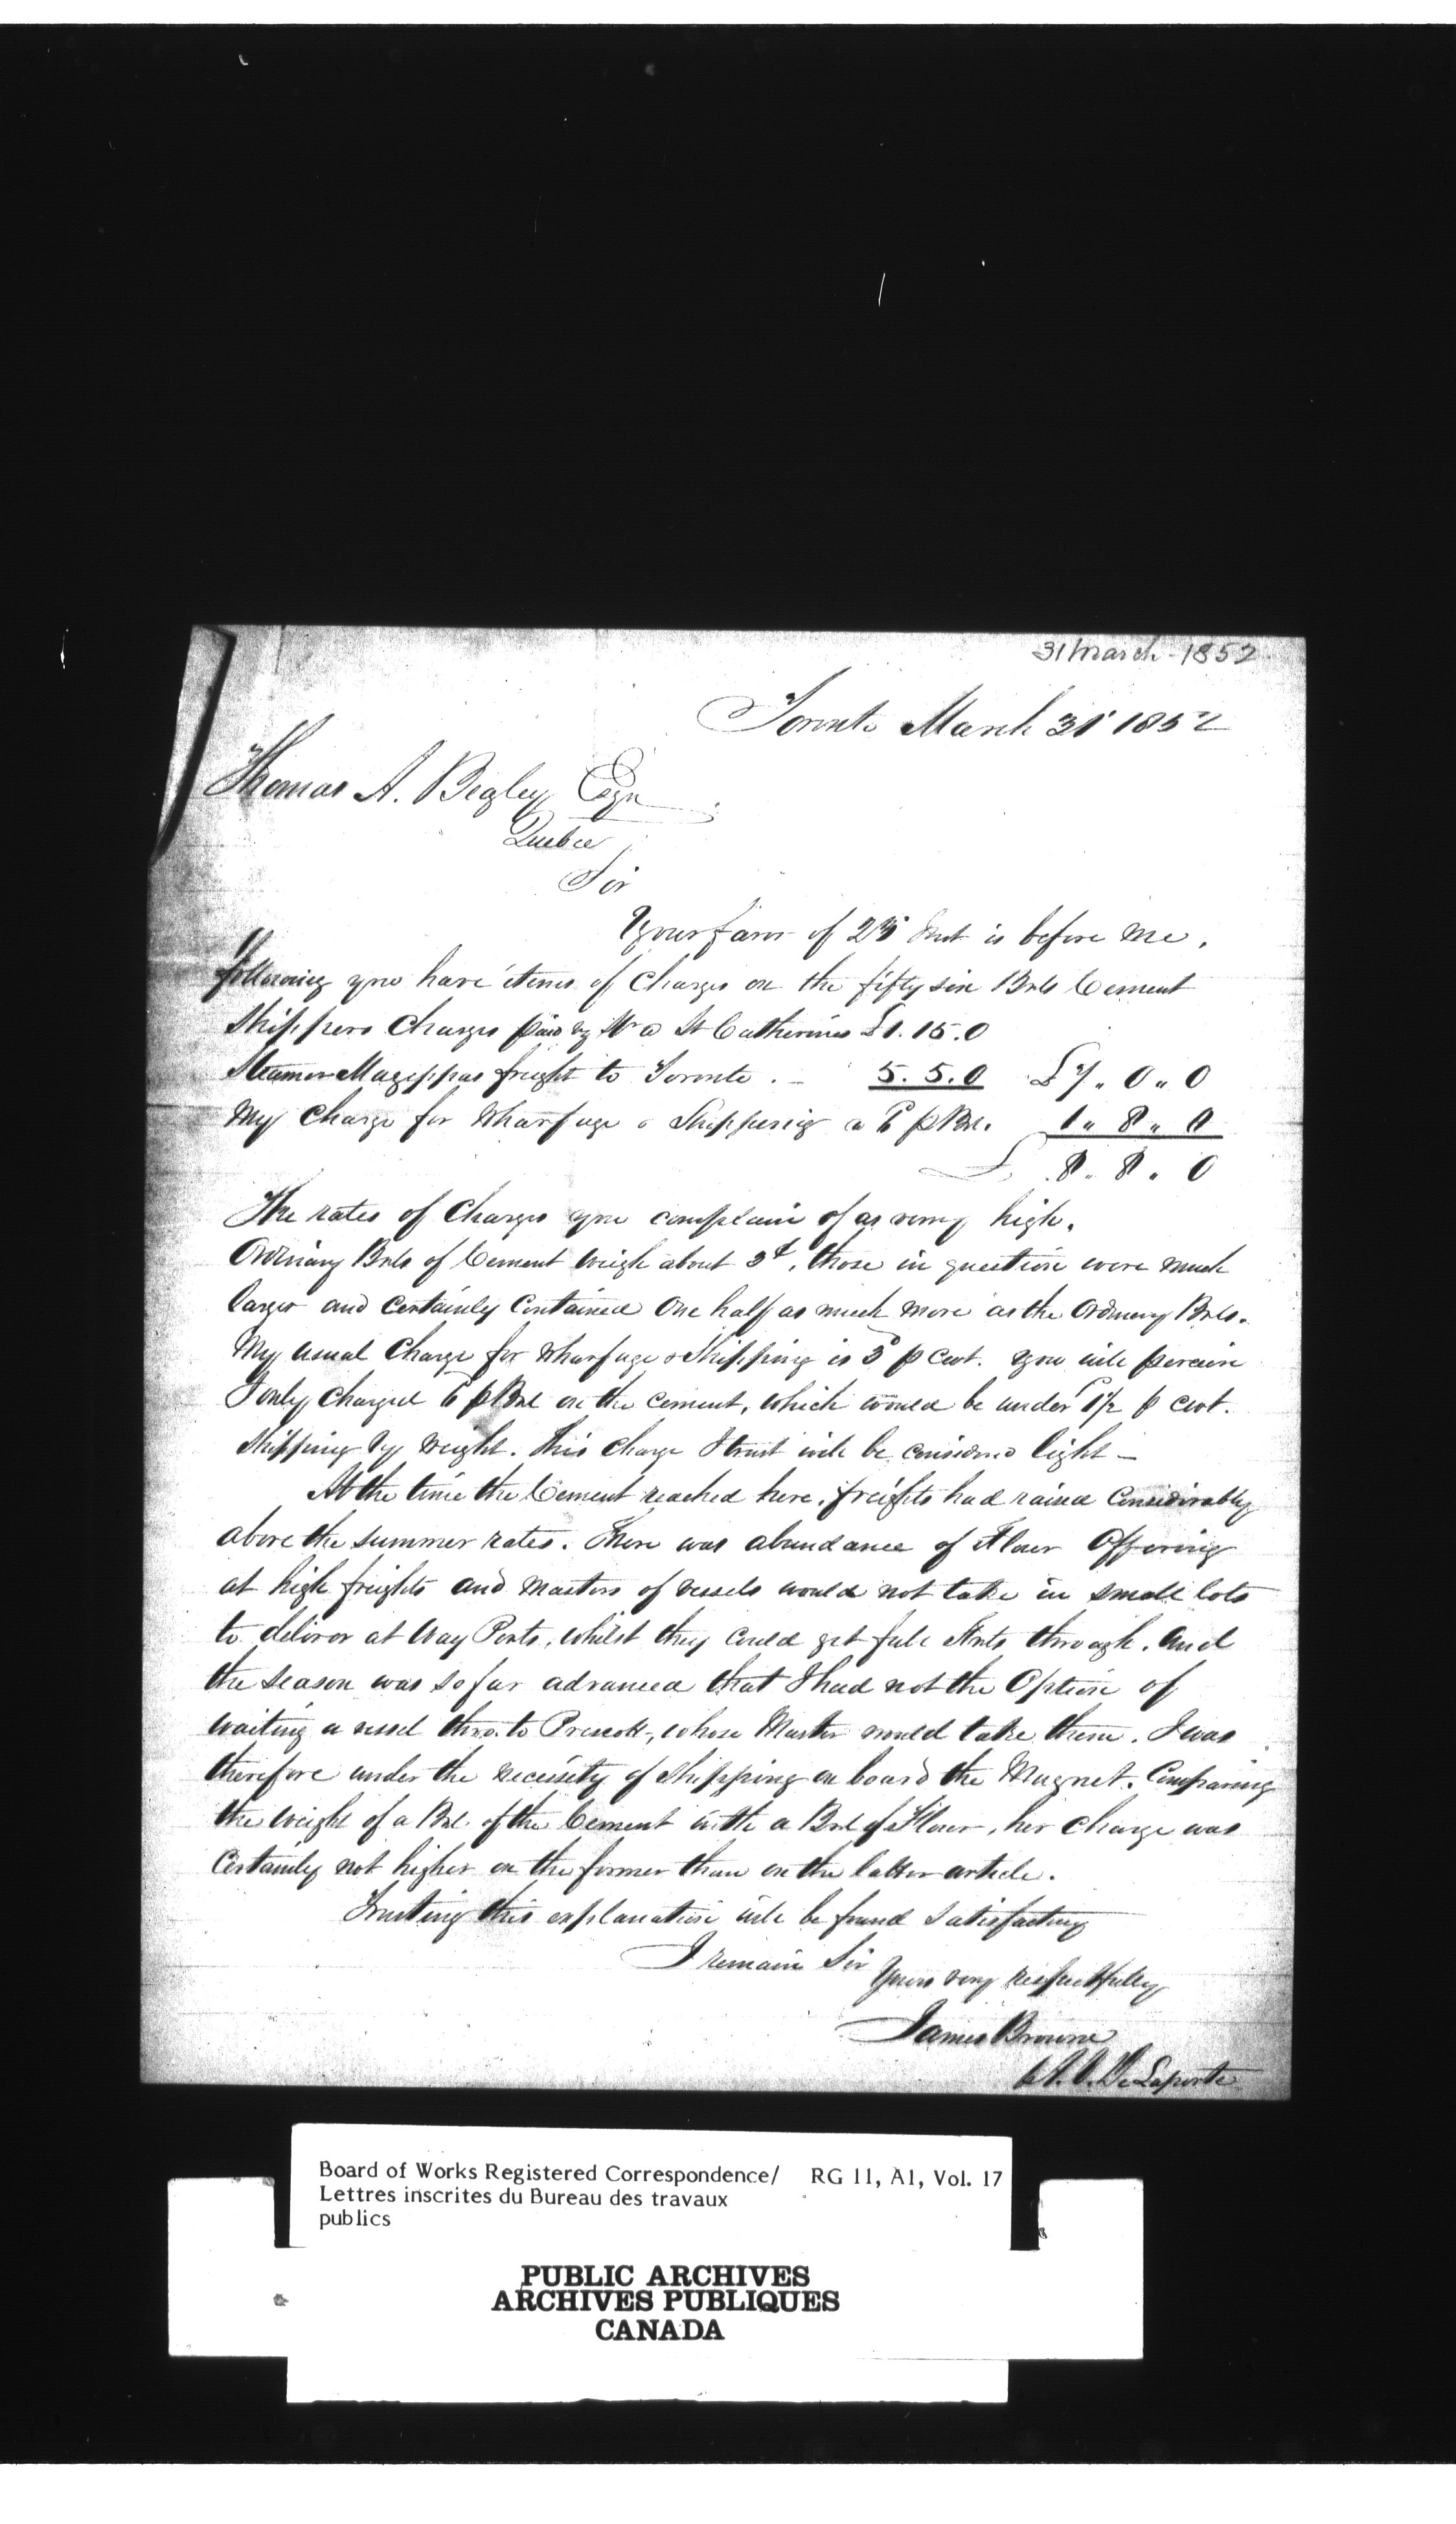 31 March - 1852
Toronto March 31st 1852
Thomas A. Begley Esqr
Quebec
Sir
Your favor of 23d Inst is before me.
following you have items of Charges on the fifty six Brls Cement
Shippers Charges paid by St Catherines £1.15.0
Steamer Mazeppas freight to Toronto . - 5.5.0 £7 " 0 " 0
My Charge for Wharfage & Shipping a 6d p Brl. 1 " 8 " 0
£ 8 " 8 " 0
The rates of Charges you complain of as very high.
Ordinary Brls of Cement weigh about 3 , those in question were much
larger and certainly contained one half as much more as the Ordinary Brls.
My usual Charge for Wharfage & Shipping is 3d p Cwt. you will perceive
I only charged 6d p Brl on the cement, which would be under 1 1/2 p cwt.
Shipping by weight. This charge I trust will be considered light -
At the time the Cement reached here, freights had raised Considerably
above the summer rates. There was abundance of Flour Offering
at high freights and masters of vessels would not take in small lots
to deliver at Way Ports, whilst they could get full through. And
the season was so far advanced that I had not the Option of
waiting a vessel thro. to Prescott, whose Master would take them. I was
therefore under the necessity of Shipping on board the Magnet. Comparing
the weight of a Brl. of the Cement with a Brl of Flour, her charge was
Certainly not higher on the former than on the latter article.
Trusting this explanation will be found satisfactory
I remain Sir
Yours very respectfully
James Browne
De Laporte
Board of Works Registered Correspondence/ RG 11, A1, Vol. 17
Lettres inscrites du Bureau des travaux
publics
PUBLIC ARCHIVES
ARCHIVES PUBLIQUES
CANADA